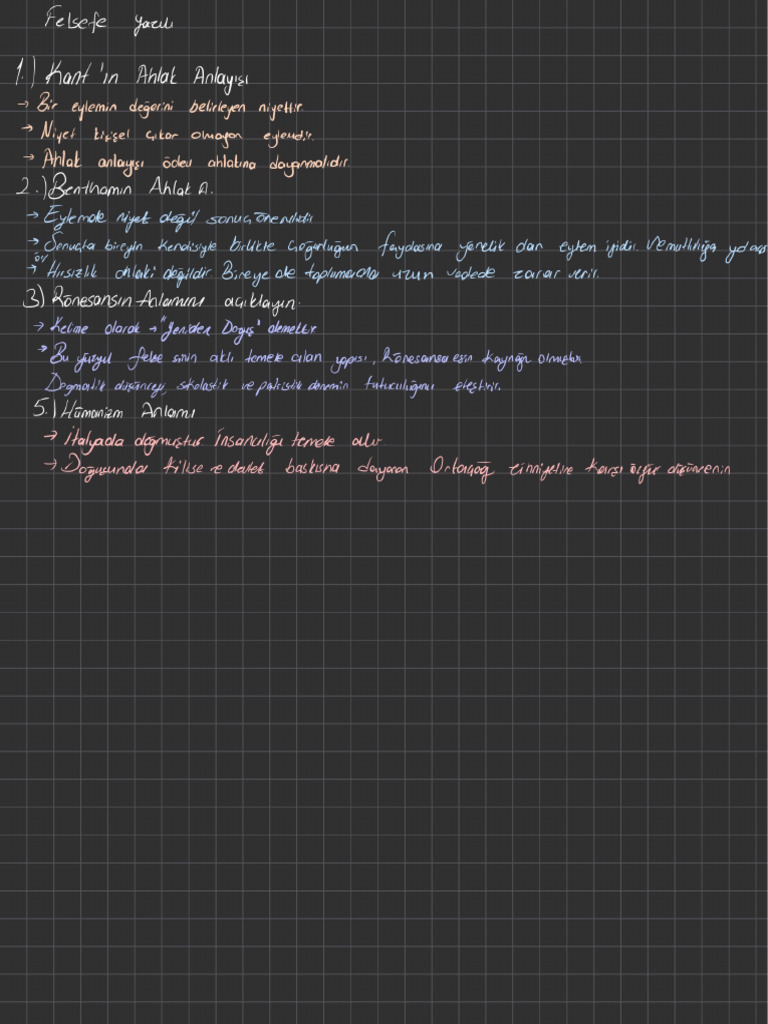 Felsefe yazılı
1.) Kant'ın Ahlak Anlayışı
→ Bir eylemin değerini belirleyen niyettir.
→ Niyet kişisel çıkar olmayan eylemdir.
→ Ahlak anlayışı ödev ahlakına dayanmalıdır.
2.) Benthamın Ahlak A.
→ Eylemde niyet değil sonuç önemlidir
→ Sonuçta bireyin kendisiyle birlikte çoğunluğun faydasına yönelik olan eylem iyidir. Ve mutluluğa
Ör/
→ Hırsızlık ahlaki değildir. Bireye de topluma da uzun vadede zarar verir.
3) Rönesansın Anlamını açıklayın.
→ Kelime olarak → "Yeniden Doğuş" demektir
→ Bu yüzyıl felsefesinin aklı temele alan yapısı, Rönesansa esin kaynağı olmuştur
Dogmatik düşünceyi, skolastik ve patristik dönemin tutuculuğunu eleştirir.
5.) Hümanizm Anlamı
→ İtalyada doğmuştur İnsancılığı temele alır
→ Doğuşunda kilise ve devlet baskısına dayanan Ortaçağ zihniyetine karşı özgür düşüncenin